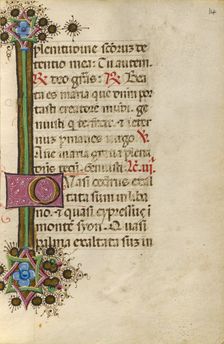 14
plenitudine sc̄torum de
tentio mea: Tu autem.
℟ deo gr̄as: ℟. Bea
ta es maria que dn̄m por
tasti creatorem mūdi. ge
nuisti q̄ te fecit. ⁊ eter
num ꝑmanes uirgo. ℣
Aue maria gratia plena
dn̄s tecū. Genuisti.
QUasi cedrus exal
tata sum in liba
no. ⁊ quasi cypressus ī
monte syon. Quasi
palma exaltata sum in